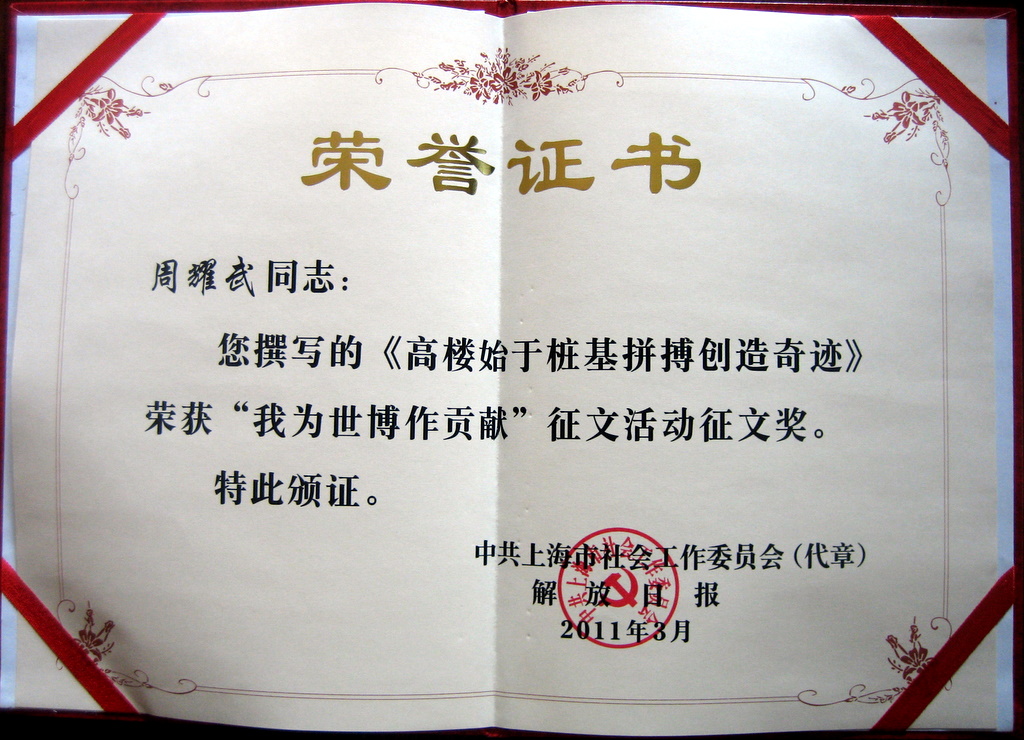 荣誉证书
周耀武同志：
您撰写的《高楼始于桩基拼搏创造奇迹》
荣获“我为世博作贡献”征文活动征文奖。
特此颁证。
中共上海市社会工作委员会（代章）
解放日报
2011年3月
中共上海市社会工作委员会